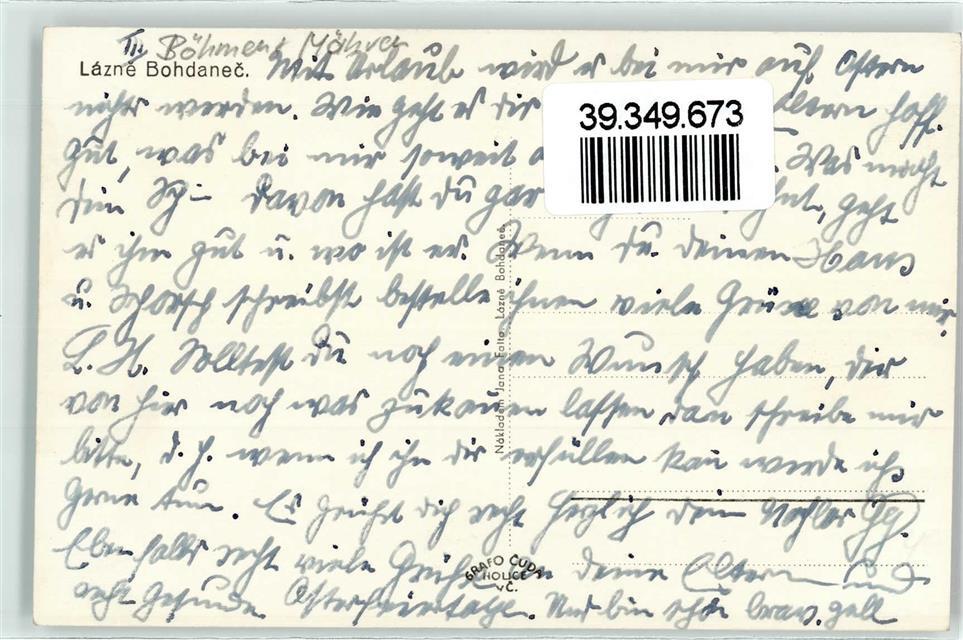 III Böhmen & Mähren
Lázně Bohdaneč.
Mit Urlaub wird es bei mir auf Ostern
nichts werden. Wie geht es dir Eltern hoff.
39.349.673
gut, was bei mir soweit Was macht
dein Davon hast du gar geht
es ihm gut u. wo ist er. Wenn du deinen Hans
u. Schorsch schreibst bestelle ihnen viele Grüße von mir.
Solltest du noch einen Wunsch haben, dir
von hier noch was zukauen lassen dan schreibe mir
bitte, d. h. wenn ich ihn dir erfüllen kan werde ichs
gerne tun. Es grüßt dich recht herzlich dein
Ebenfalls recht viele Grüße an deine Eltern und
recht gesunde Osterfeiertage. Und bin schön brav. gell
Nákladem Jana Falta, Lázně Bohdaneč
GRAFO ČUDA
HOLICE
v Č.